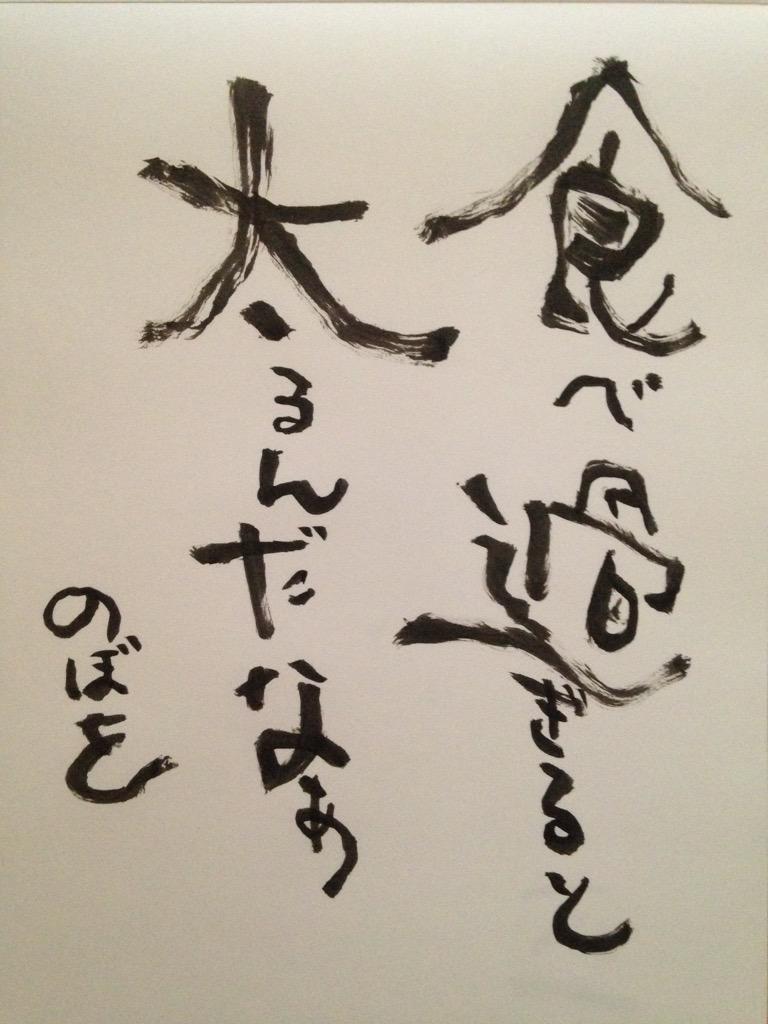 食べ過ぎると
太るんだなあ
のぼを